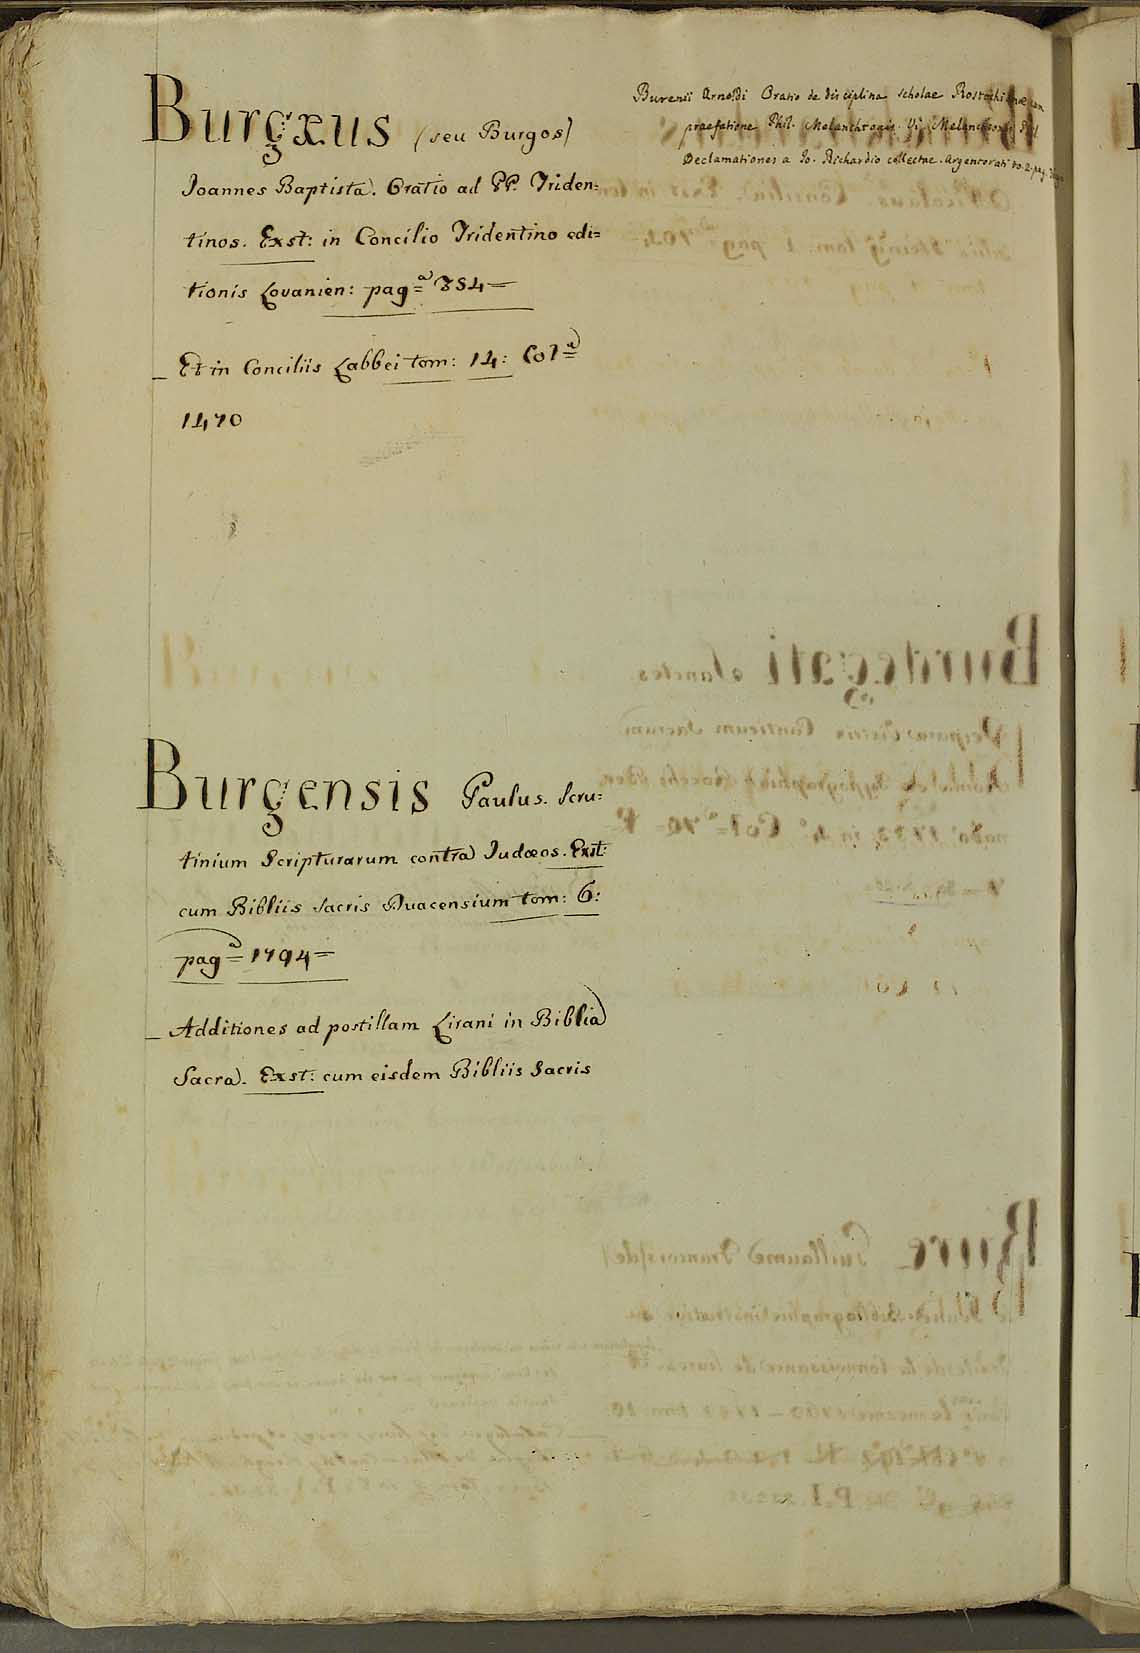 Burgæus (seu Burgos)
Joannes Baptista. Oratio ad PP. Triden=
tinos. Exst: in Concilio Tridentino edi=
tionis Lovanien: pagᵃ= 854=
Et in Conciliis Labbei tom: 14: Colᵃ=
1470
Burensii Arnoldi Oratio de disciplina scholae Rostochianae cum
praefatione Phil. Melanchtonis. Vi. Melanchtonis Phil
Declamationes a Jo. Richardio collectae. Argentorati to. 2. pag.
Burgensis Paulus. Scru=
tinium Scripturarum contra Judæos. Exst:
cum Bibliis Sacris Duacensium tom: 6:
pagᵃ= 1794=
Additiones ad postillam Lirani in Biblia
Sacra. Exst: cum eisdem Bibliis Sacris